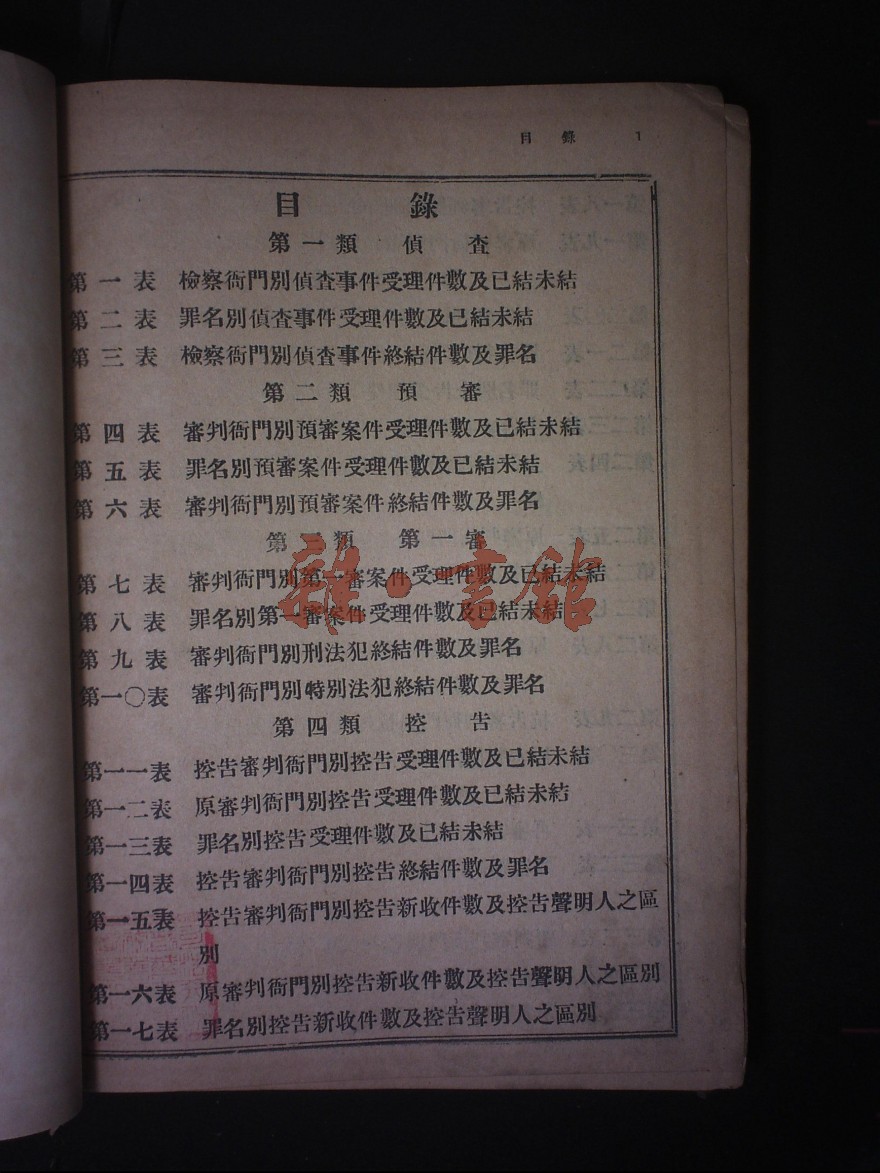 目錄 1
目錄
第一類 偵查
第一表 檢察衙門別偵查事件受理件數及已結未結
第二表 罪名別偵查事件受理件數及已結未結
第三表 檢察衙門別偵查事件終結件數及罪名
第二類 預審
第四表 審判衙門別預審案件受理件數及已結未結
第五表 罪名別預審案件受理件數及已結未結
第六表 審判衙門別預審案件終結件數及罪名
第三類 第一審
第七表 審判衙門別第一審案件受理件數及已結未結
第八表 罪名別第一審案件受理件數及已結未結
第九表 審判衙門別刑法犯終結件數及罪名
第一〇表 審判衙門別特別法犯終結件數及罪名
第四類 控告
第一一表 控告審判衙門別控告受理件數及已結未結
第一二表 原審判衙門別控告受理件數及已結未結
第一三表 罪名別控告受理件數及已結未結
第一四表 控告審判衙門別控告終結件數及罪名
第一五表 控告審判衙門別控告新收件數及控告聲明人之區
別
第一六表 原審判衙門別控告新收件數及控告聲明人之區別
第一七表 罪名別控告新收件數及控告聲明人之區別
雜·書館